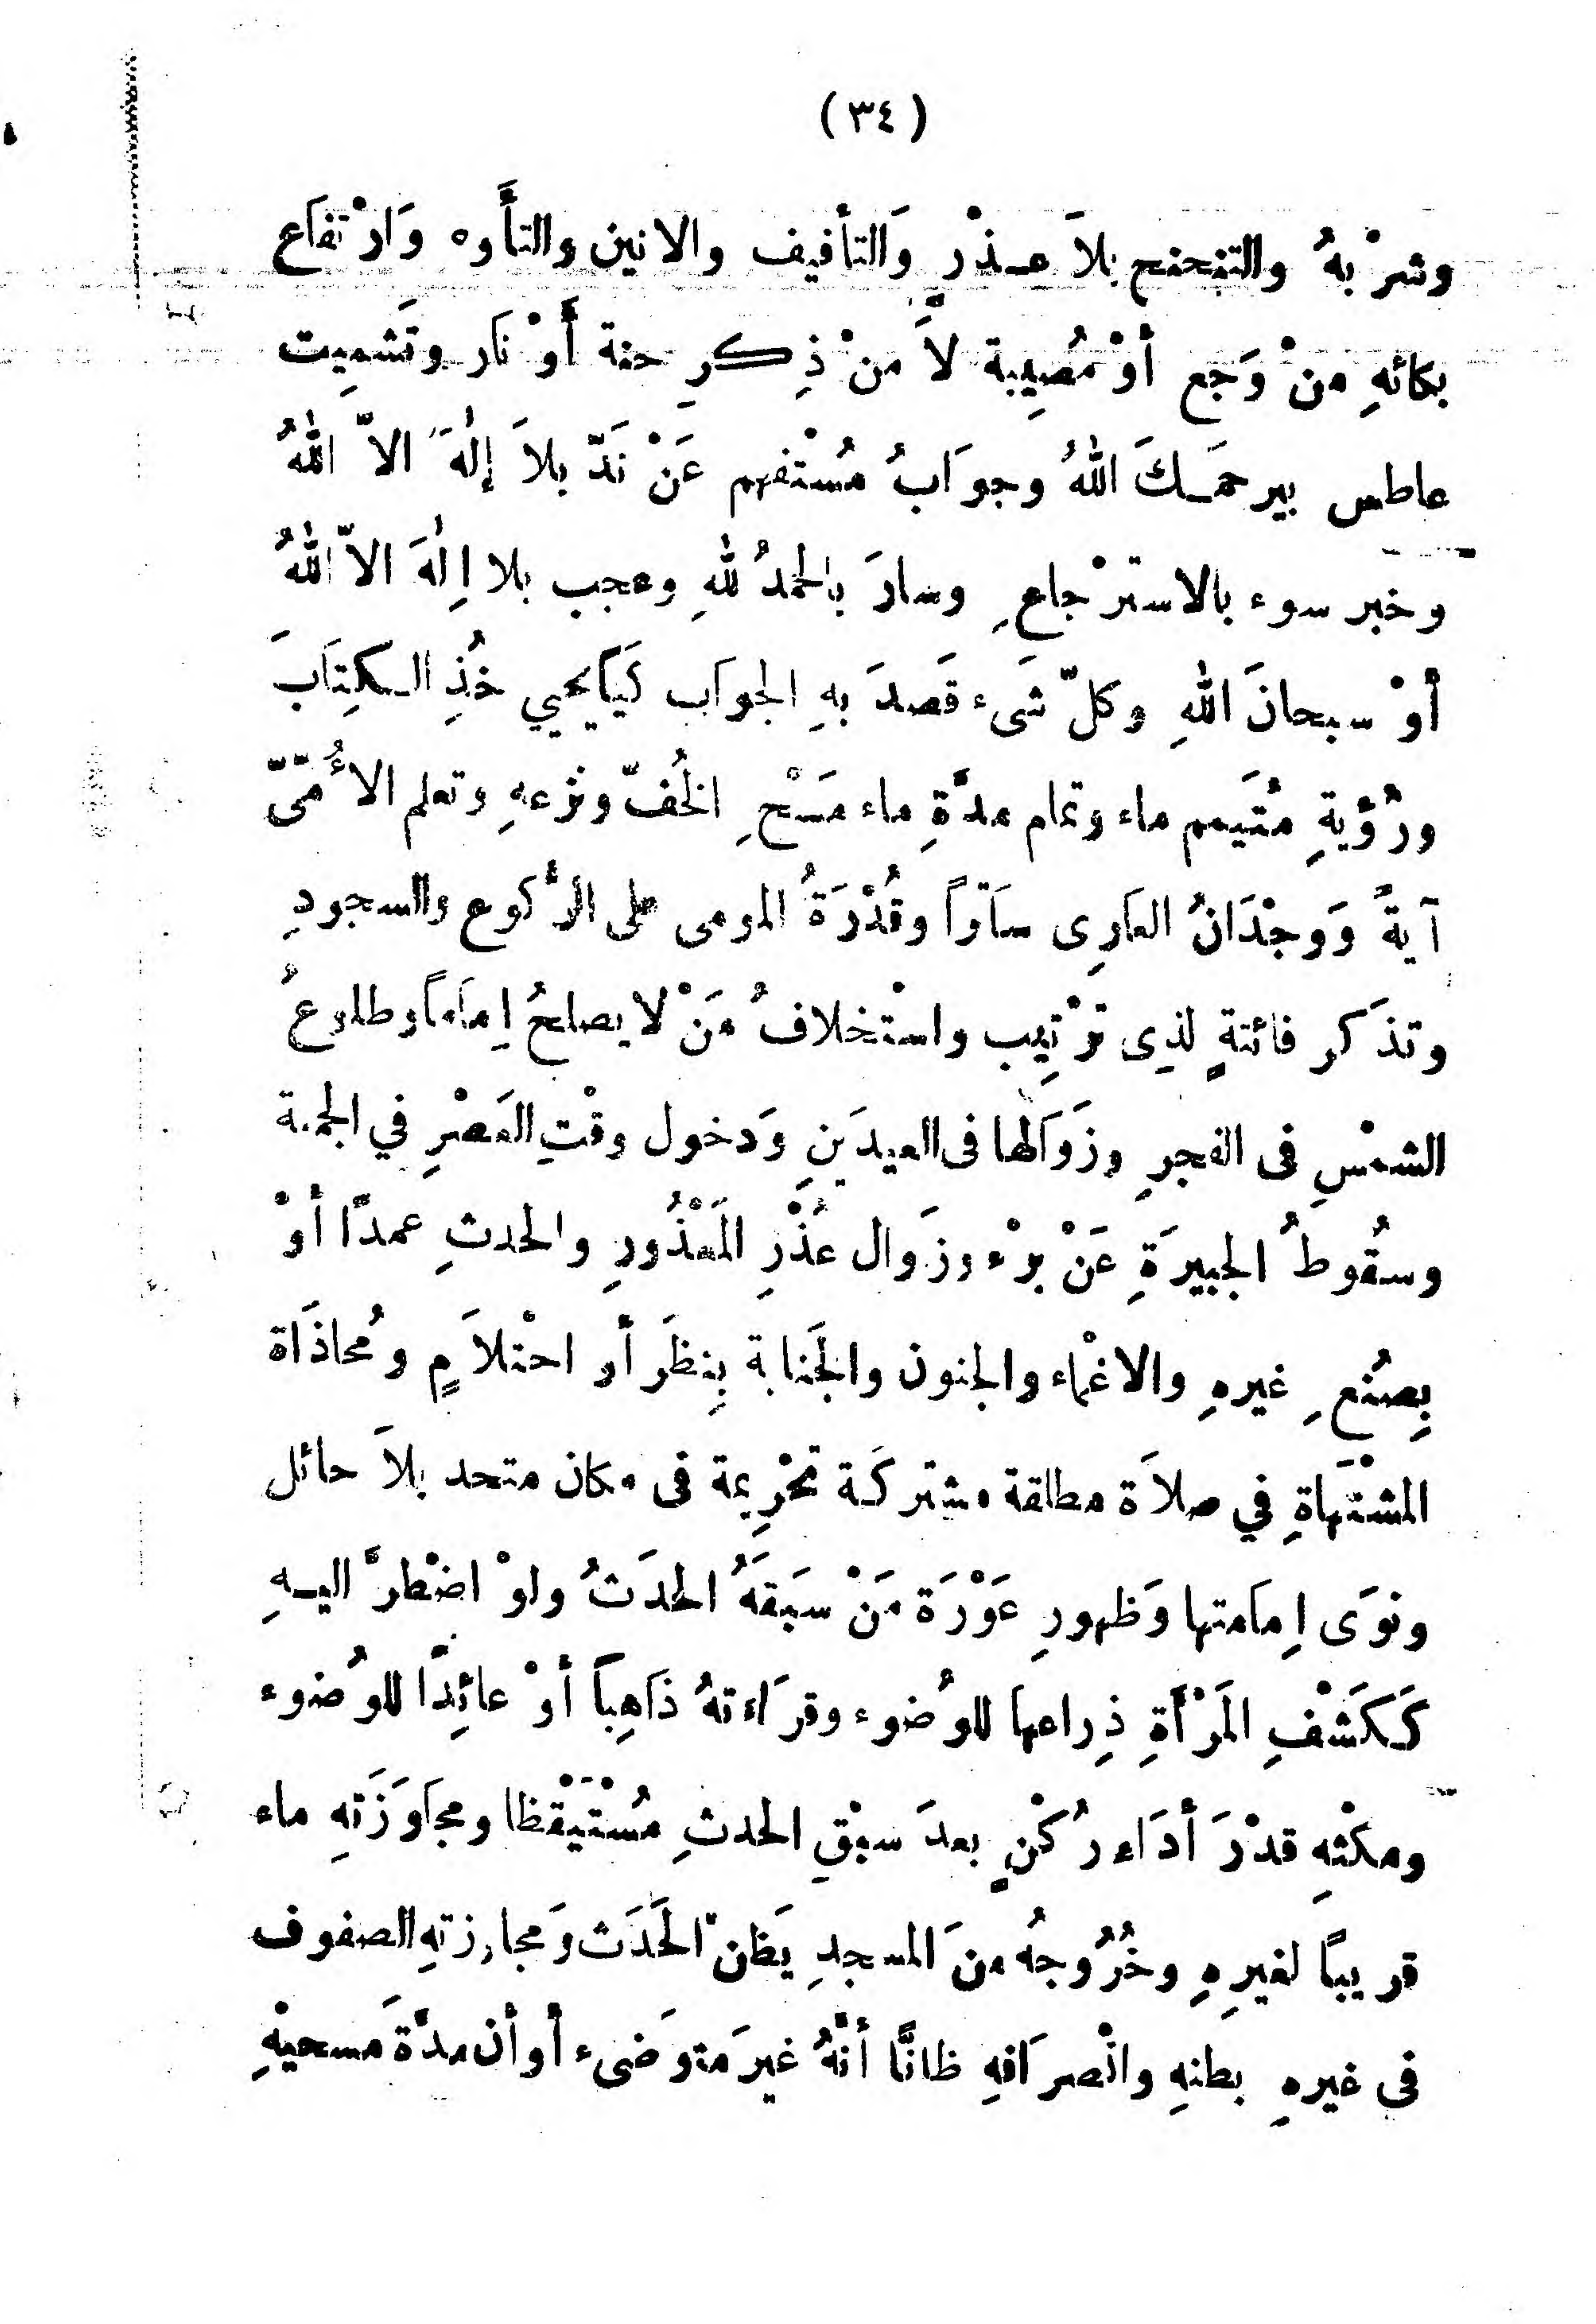 (٣٤)
وشرْبهُ والتنحنح بلاَ عـذْرٍ وَالتأفيف والانين والتأَوه وَارْتفَاع
بكائهِ منْ وَجَع أوْ مُصِيبة لاَ منْ ذِكرِ جنة أَوْ نَار وتَشمِيت
عاطس بيرحمَـكَ اللهُ وجوَابُ مُسْتفهم عَنْ نَدّ بلاَ إلٰهَ الاّ اللهُ
وخبر سوء بالاسترْجاعِ وسارَ بالحمدُ للهِ وعجب بلا اِلٰهَ الاّ اللهُ
أوْ سبحانَ اللهِ وكلّ شَىء قَصدَ بهِ الجوَاب كَيَايَحيي خُذِ الـكِتَابَ
ورُؤيةِ مُتَيمم ماء وتمام مدَّةِ ماء مَسْحِ الخُفّ ونزعهِ وتعلم الأُمّىّ
آيةً وَوجْدَانُ العَارِى سَاتراً وقُدْرَةُ المومى على الرُّكوع والسجودِ
وتذَكر فائتةٍ لذِى ترْتِيب واسْتخلافُ مَنْ لايصلحُ اِمَاماً وطلوعُ
الشمْسِ فى الفجرِ وزَوَالها فى العيدَينِ وَدخول وقْتِ العَصْرِ في الجمعة
وسقُوطُ الجبيرَةِ عَنْ برْء وزَوال عُذْرِ المَعْذُورِ والحدثِ عمدًا أوْ
بِصنُعِ غيرهِ والاغْماء والجنون والجَنابة بِنظَر أو احْتلاَمٍ ومُحاذَاة
المشْتهَاةِ في صلاَة مطلقة مشتركَة تحْرِيمة فى مكان متحد بلاَ حائل
ونوَى اِمَامتها وَظهورِ عَوْرَة مَنْ سَبقَهُ الحدَثُ ولوْ اضْطرَّ اليـهِ
كَكَشْفِ المَرْأَةِ ذِراعها للوُضوء وقرَاءتهُ ذَاهِبَاً أوْ عائِدًا للوُضوء
ومكْثهِ قدْرَ أدَاء رُكْنٍ بعدَ سبْقِ الحدثِ مُسْتَيْقظا ومجَاوَزَتهِ ماء
قريباً لغيرِهِ وخُرُوجهُ منَ المسجدِ يَظنّ الحَدَث وَمجاوزتهِ الصفوف
فى غيرهِ بظنهِ وانْصرَافهِ ظانًّا أنَّهُ غيرَ متوَضىء أو أن مدَّةَ مَسحيْهِ